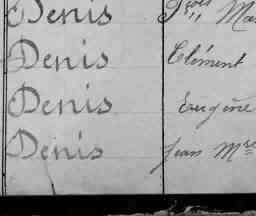 Denis
Denis Clément
Denis Eugène
Denis Jean Mre